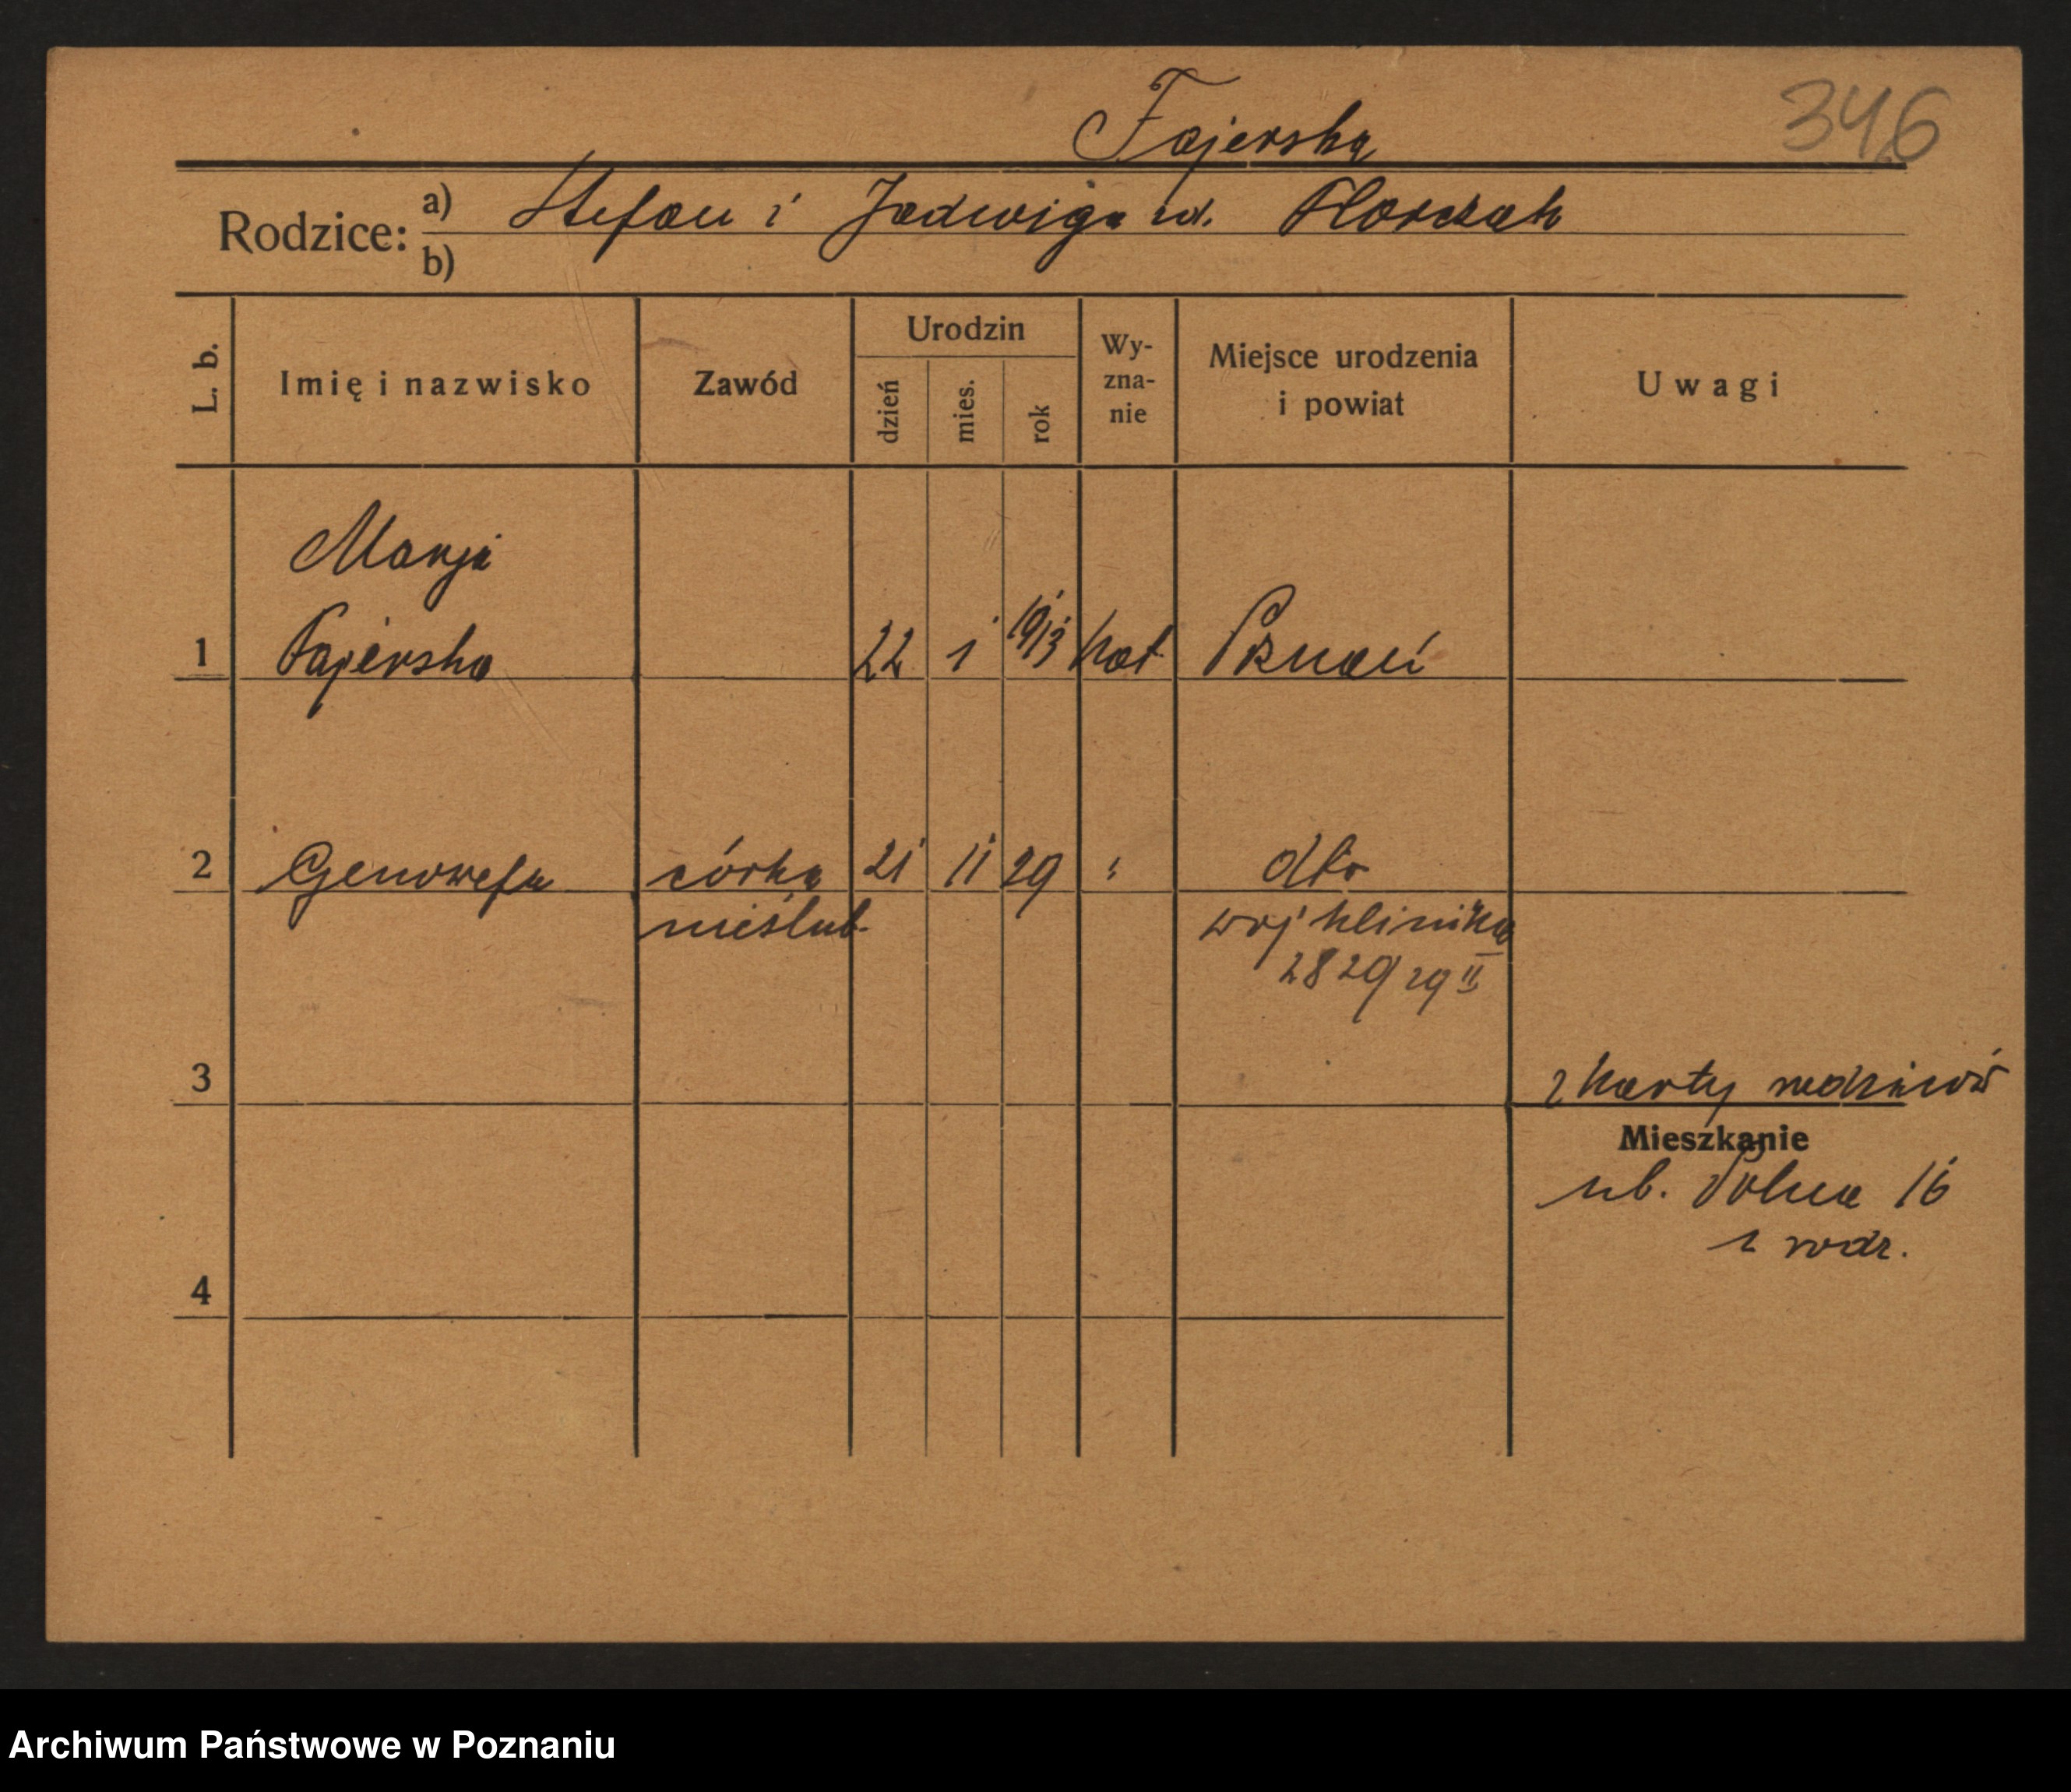 Fajerska
346
Rodzice: a) Stefan i Jadwiga zd. Florczak
b)
L. b.
Imię i nazwisko
Zawód
Urodzin
dzień
mies.
rok
Wy-
zna-
nie
Miejsce urodzenia
i powiat
Uwagi
Marja
1 Fajerska 22 1 1913 kat Poznań
2 Genowefa córka 21 11 29 " dto
nieślub. woj klinika
28 29 29 II
3
z karty rodziców
Mieszkanie
ub. Polna 16
z rodz.
4
Archiwum Państwowe w Poznaniu